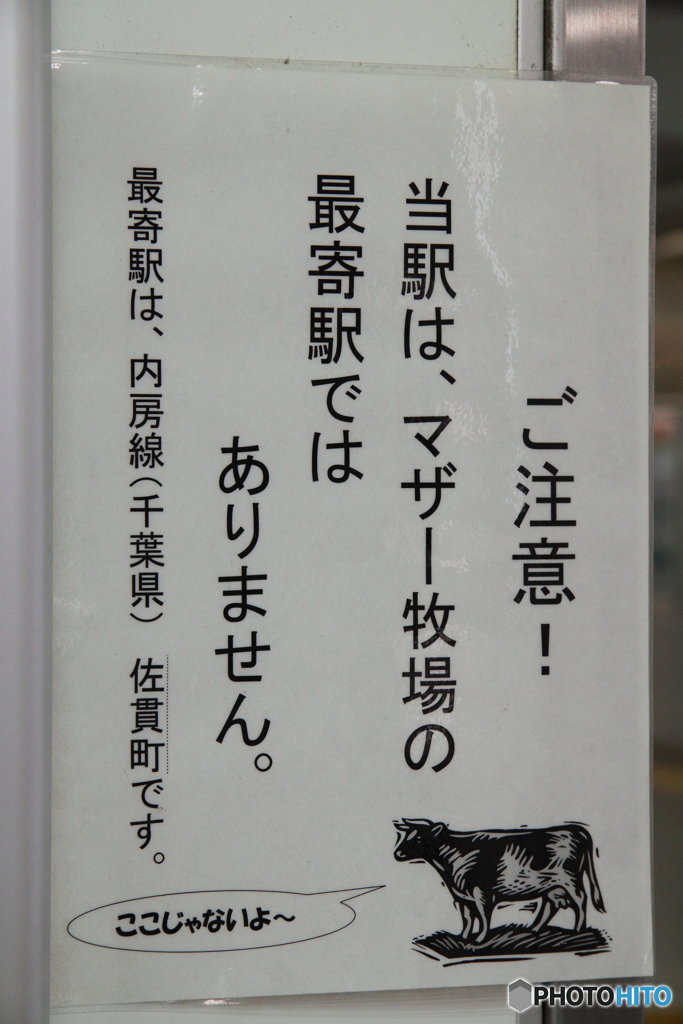 ご注意！
当駅は、マザー牧場の
最寄駅では
ありません。
最寄駅は、内房線（千葉県）　佐貫町です。
ここじゃないよ～
PHOTOHITO